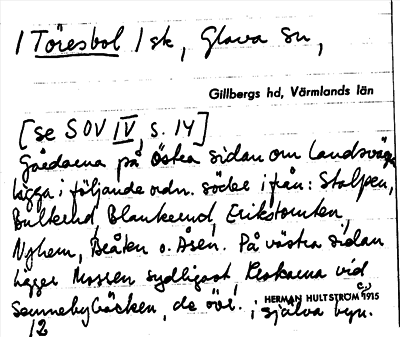 / Töresbol / sk, Glava sn,
Gillbergs hd, Värmlands län
[se SOV IV, s. 14]
Gårdarna på östra sidan om landsväga
ligga i följande ordn. söder ifrån: Stolpen,
Bulkend, Blankend, Erikstomten,
Nyhem, Bråten o. Åsen. På västra sidan
ligger Mossen sydligast, Peskarna vid
Sennebybäcken, de övr. i själva byn.
HERMAN HULTSTRÖM C:) 1915
12